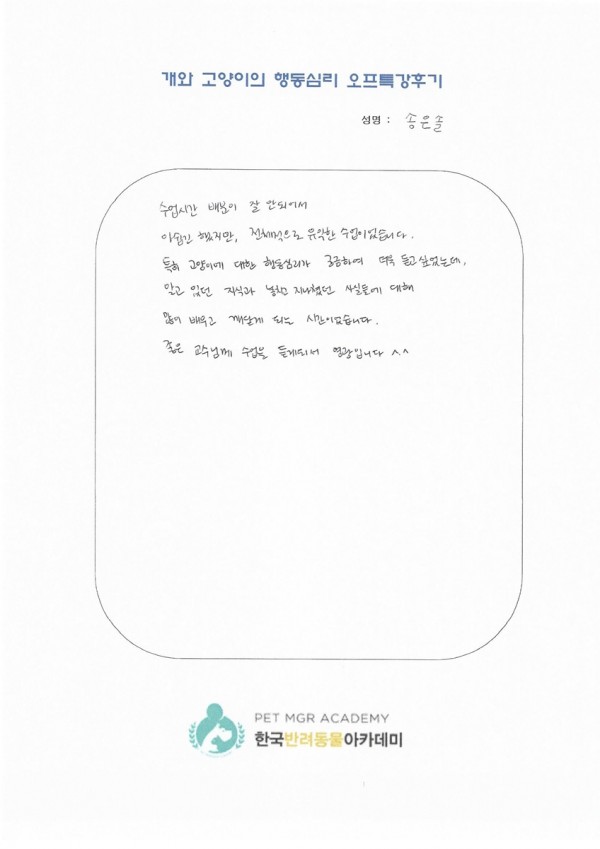 개와 고양이의 행동심리 오프특강후기
성명 : 송은솔
수업시간 배분이 잘 안되어서
아쉽긴 했지만, 전체적으로 유익한 수업이었습니다.
특히 고양이에 대한 행동심리가 궁금하여 더욱 듣고 싶었는데,
알고 있던 지식과 놓치고 지나쳤던 사실들에 대해
많이 배우고 깨닫게 되는 시간이었습니다.
좋은 교수님께 수업을 듣게되서 영광입니다 ^^
PET MGR ACADEMY
한국반려동물아카데미